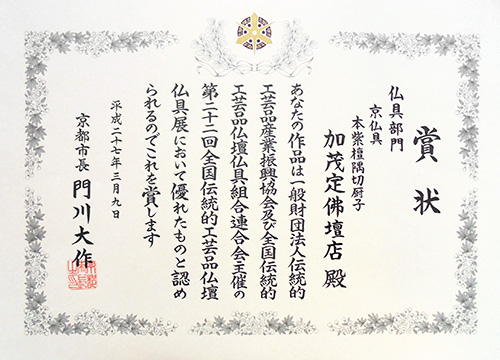 賞状
仏具部門
京仏具
本紫檀隅切厨子
加茂定佛壇店 殿
あなたの作品は一般財団法人伝統的
工芸品産業振興協会及び全国伝統的
工芸品仏壇仏具組合連合会主催の
第二十二回全国伝統的工芸品仏壇
仏具展において優れたものと認め
られるのでこれを賞します
平成二十七年三月九日
京都市長 門川大作